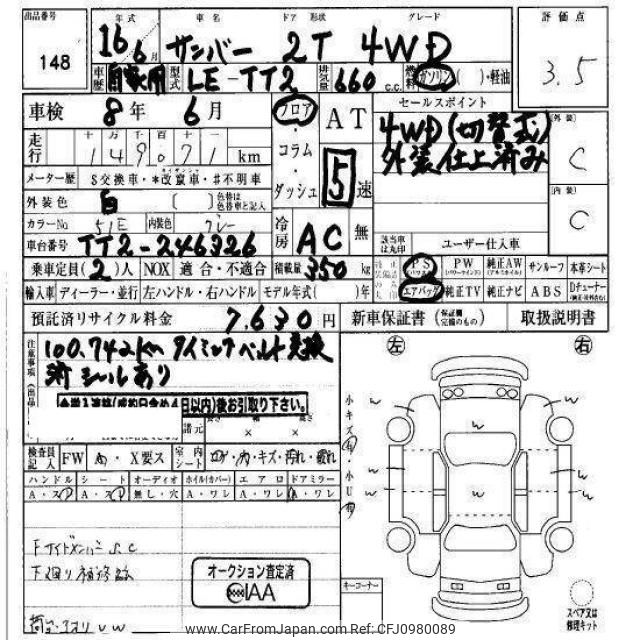 出品番号
148
年式 車名 ドア 形状 グレード
16年 6月 サンバー 2T 4WD
評価点
3.5
車歴 自家用 型式 LE-TT2 排気量 660 C.C. 燃料 ガソリン ( )・軽油
車検 8年 6月
フロア・コラム・ダッシュ
AT
5速
セールスポイント
4WD(切替式)
外装仕上済み
外装 C
内装 C
走行 十 万 千 百 十 一
149071 km
メーター歴 $交換車・*改竄車・#不明車
外装色 白 ( ) 色替は色替車と記入
カラーNo 51E 内装色 グレー
冷房 AC 無
車台番号 TT2-246326
該当車は丸印 ユーザー仕入車
乗車定員(2)人 NOX 適合・不適合 積載量 350 kg
PS (パワステ) PW (パワーウインド) 純正AW (アルミホイル) サンルーフ 本革シート
エアバッグ 純正TV 純正ナビ ABS Dチューナー
輸入車 ディーラー・並行 左ハンドル・右ハンドル モデル年式( )年
預託済リサイクル料金 7,630円
新車保証書 (保証欄完備のもの) 取扱説明書
注意事項
100,742km タイミングベルト交換
済シールあり
諸元 長さ × 幅 × 高さ
左 右
検査員記入 FW A・X要ス 室内シート コゲ・穴・キズ・汚れ・破れ
ハンドル シート オーディオ ホイル(カバー) エアロ ドアミラー
A・ス A・ス 無し・穴 A・ワレ A・ワレ A・ワレ
下サイドメンバーS,C
下廻り補修跡
荷台・アオリ U W
オークション査定済
IAA
キーコーナー
スペア又は
修理キット
小キズ 小U
w w w w w w w w
www.CarFromJapan.com Ref: CFJ0980089